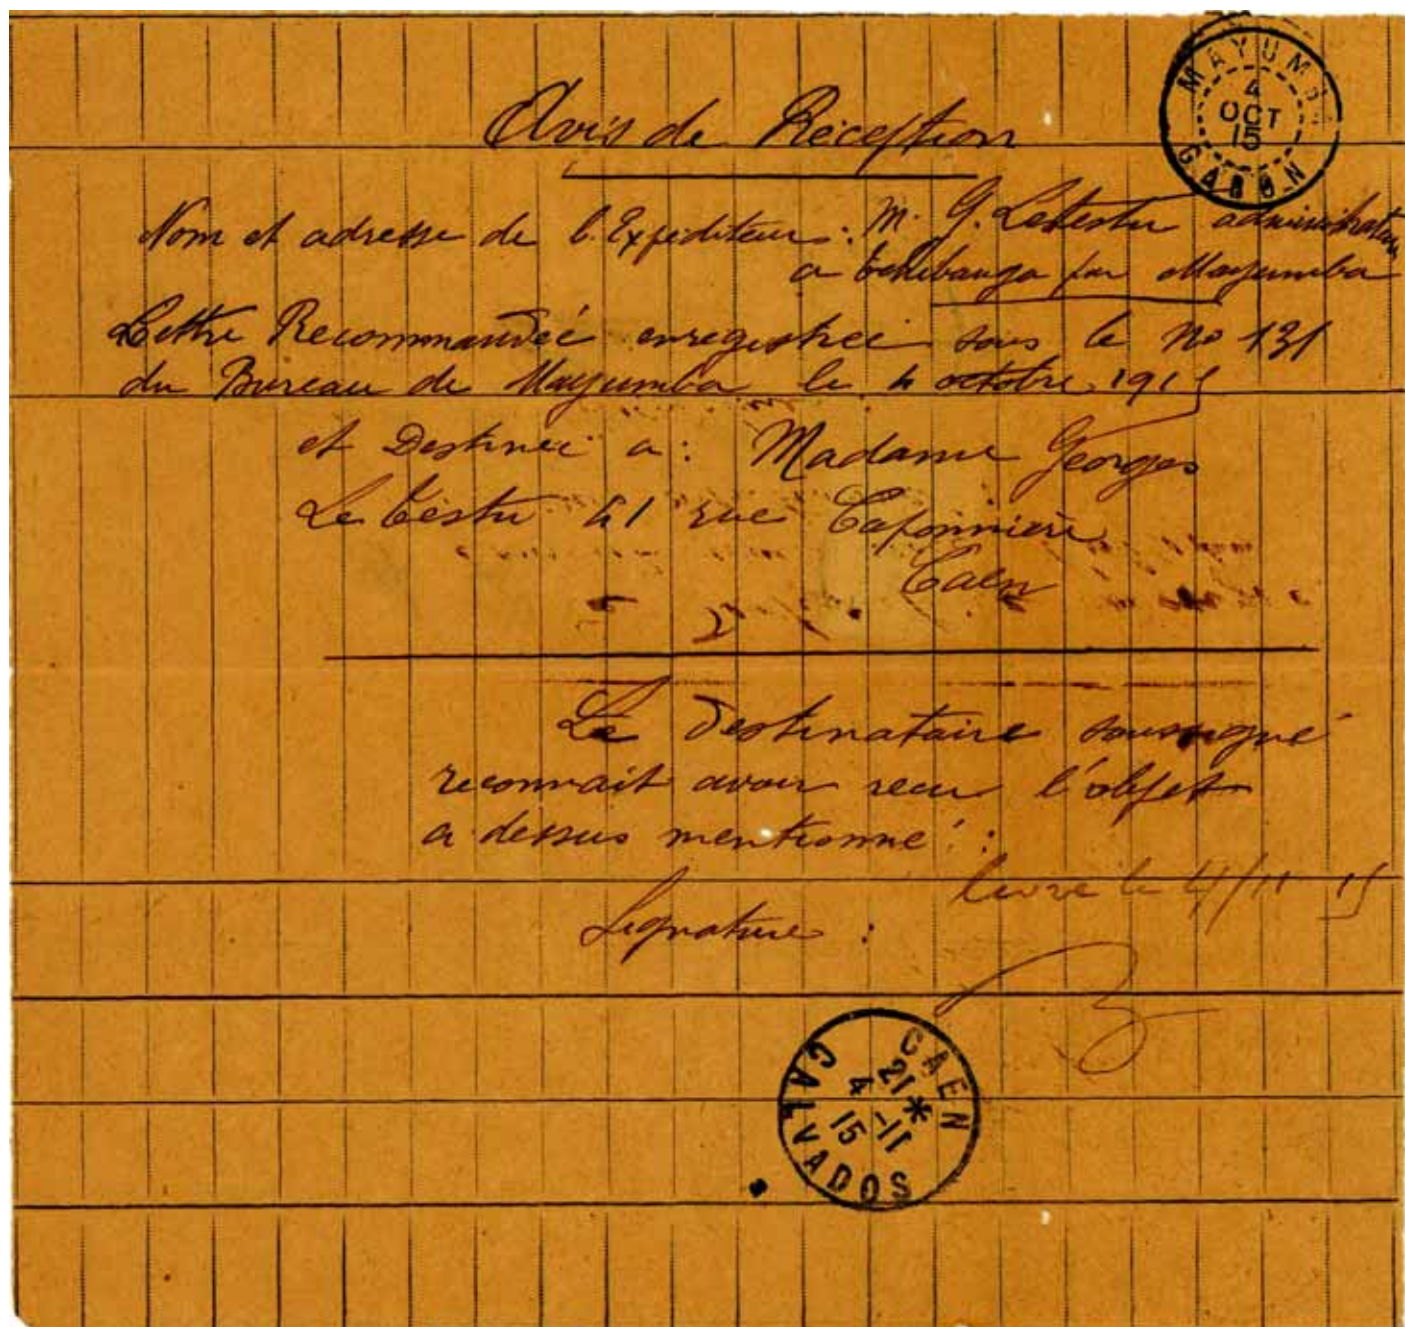 MAYUMBA
4
OCT
15
GABON
Avis de Réception
Nom et adresse de l'Expéditeur : M. G. Letestu administrateur
a Tchibanga par Mayumba
Lettre Recommandée enregistrée sous le No 131
du Bureau de Mayumba le 4 octobre 1915
et Destinée a : Madame Georges
Le Testu 41 rue Caponnière
Caen
Le Destinataire soussigné
reconnait avoir recu l'objet
ci dessus mentionné :
livré le 4/11 15
Signature :
CAEN
21 *
4 -11
15
CALVADOS